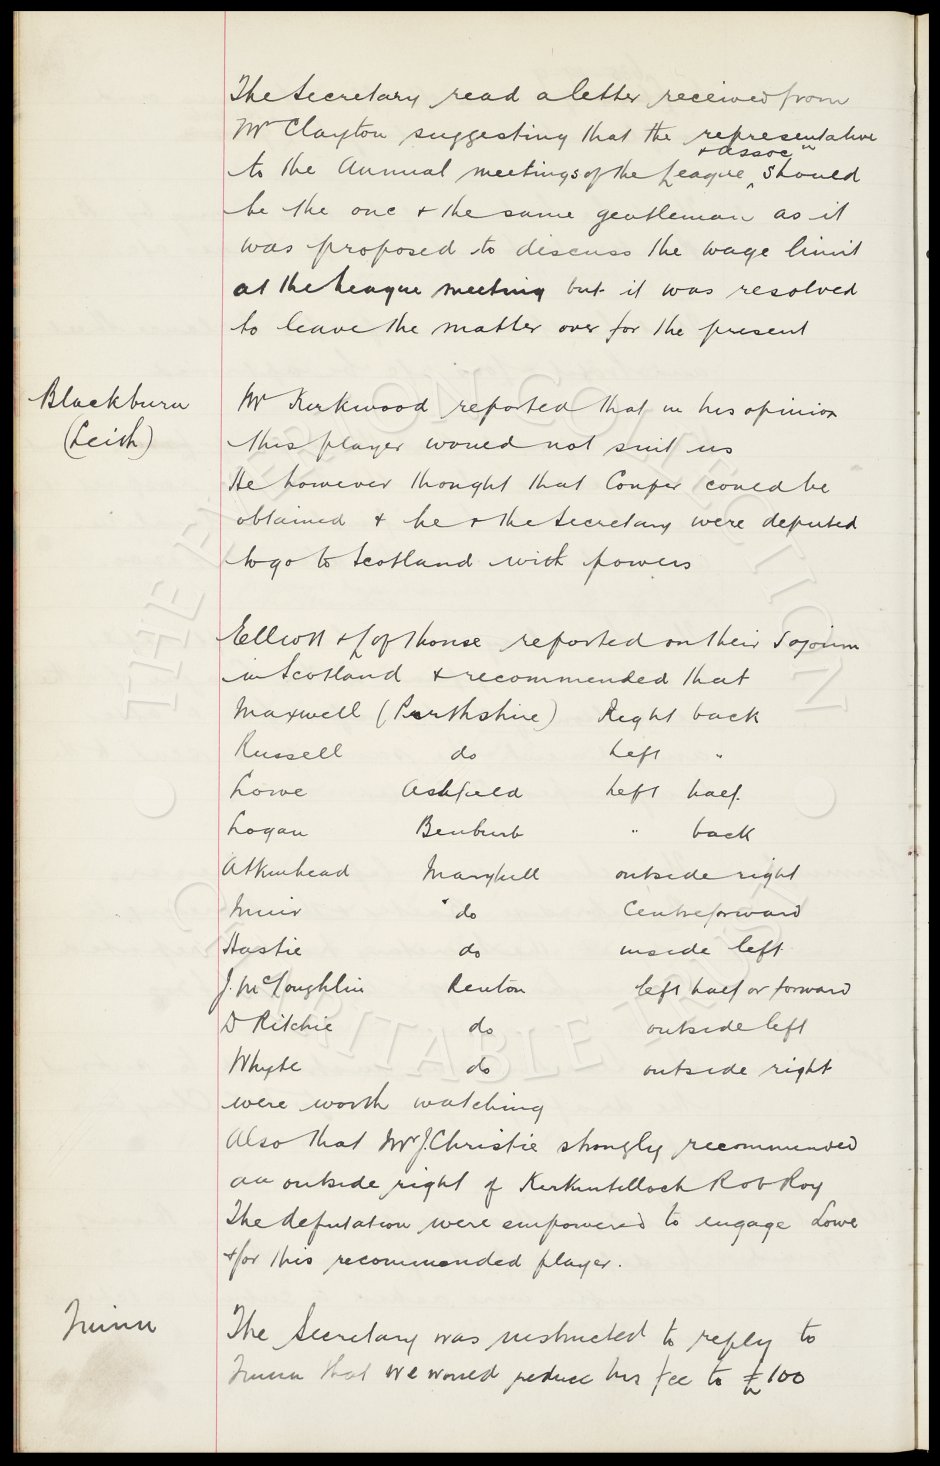 The Secretary read a letter received from
Mr Clayton suggesting that the representative
+ Assocn
to the Annual meetings of the League should
be the one + the same gentleman as it
was proposed to discuss the wage limit
at the League meeting but it was resolved
to leave the matter over for the present
Blackburn
(Leith)
Mr Kirkwood reported that in his opinion
this player would not suit us
He however thought that Conper could be
obtained + he + the Secretary were deputed
to go to Scotland with powers
Elliott + Lofthouse reported on their Sojourn
in Scotland + recommended that
Maxwell (Perthshire) Right back
Russell do Left "
Lowe Ashfield Left half.
Logan Benburb " back
Atkinhead Maryhill outside right
Muir do Centreforward
Hastie do inside left
J. McLoughlin Renton left half or forward
D Ritchie do outside left
Whyte do outside right
were worth watching
Also that Mr J. Christie strongly recommended
an outside right of Kirkintilloch Rob Roy
The deputation were empowered to engage Lowe
+/or this recommended player.
The Secretary was instructed to reply to
that we would reduce his fee to £100
THE EVERTON COLLECTION
CHARITABLE TRUST